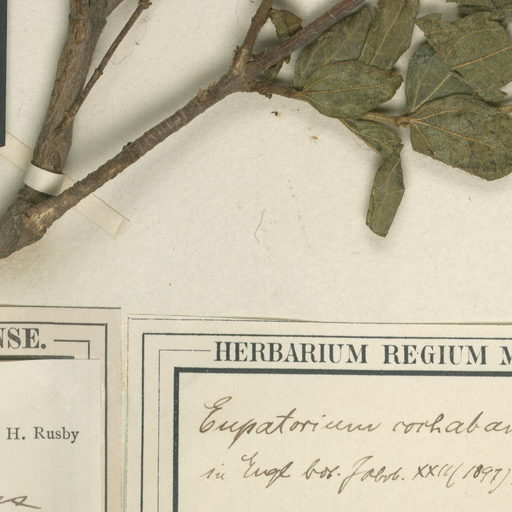 NSE.
H. Rusby
HERBARIUM REGIUM M
Eupatorium cochaban
in Engl. bot. Jahrb. XXII (1897)